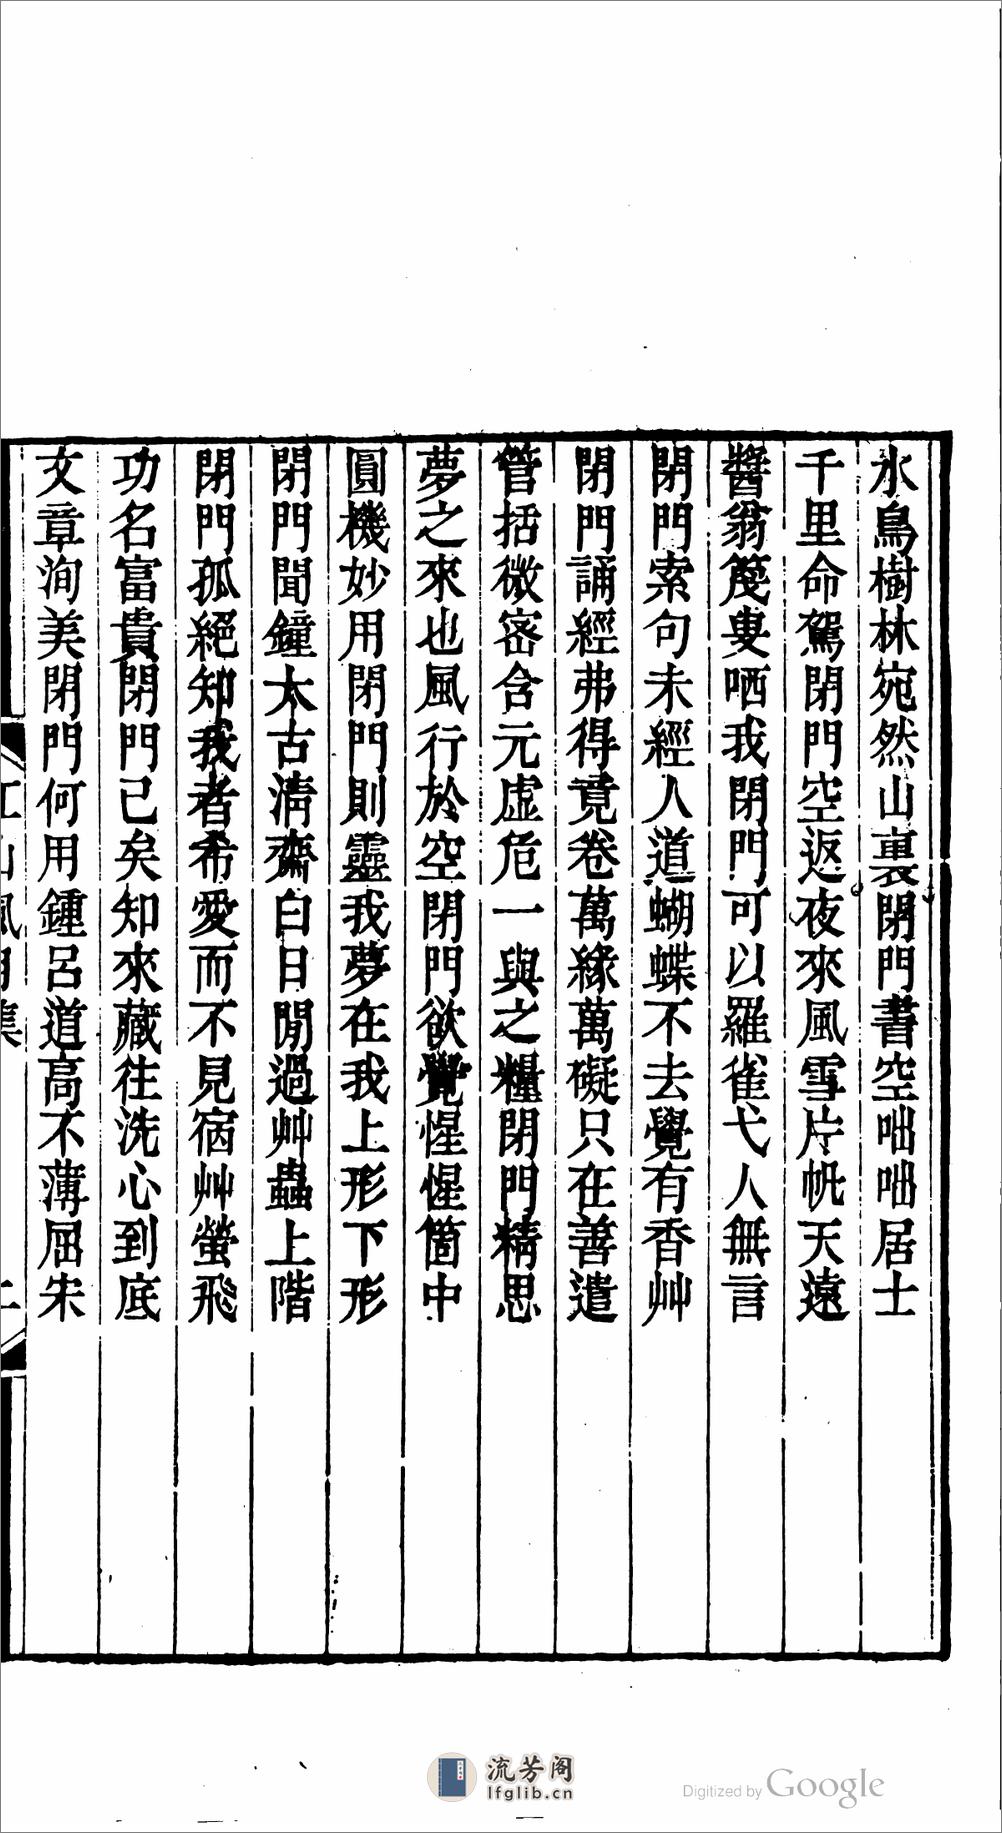 水鳥樹林宛然山裏閉門書空咄咄居士
千里命駕閉門空返夜來風雪片帆天遠
醬翁篾叟哂我閉門可以羅雀弋人無言
閉門索句未經人道蝴蝶不去覺有香艸
閉門誦經弗得竟卷萬緣萬礙只在善遣
管括微密含元虛危一與之糧閉門精思
夢之來也風行於空閉門欲覺惺惺箇中
圓機妙用閉門則靈我夢在我上形下形
閉門聞鐘太古清齋白日閒過艸蟲上階
閉門孤絕知我者希愛而不見宿艸螢飛
功名富貴閉門已矣知來藏往洗心到底
文章洵美閉門何用鍾呂道高不薄屈宋
江山風月集
流芳阁
lfglib.cn
Digitized by Google